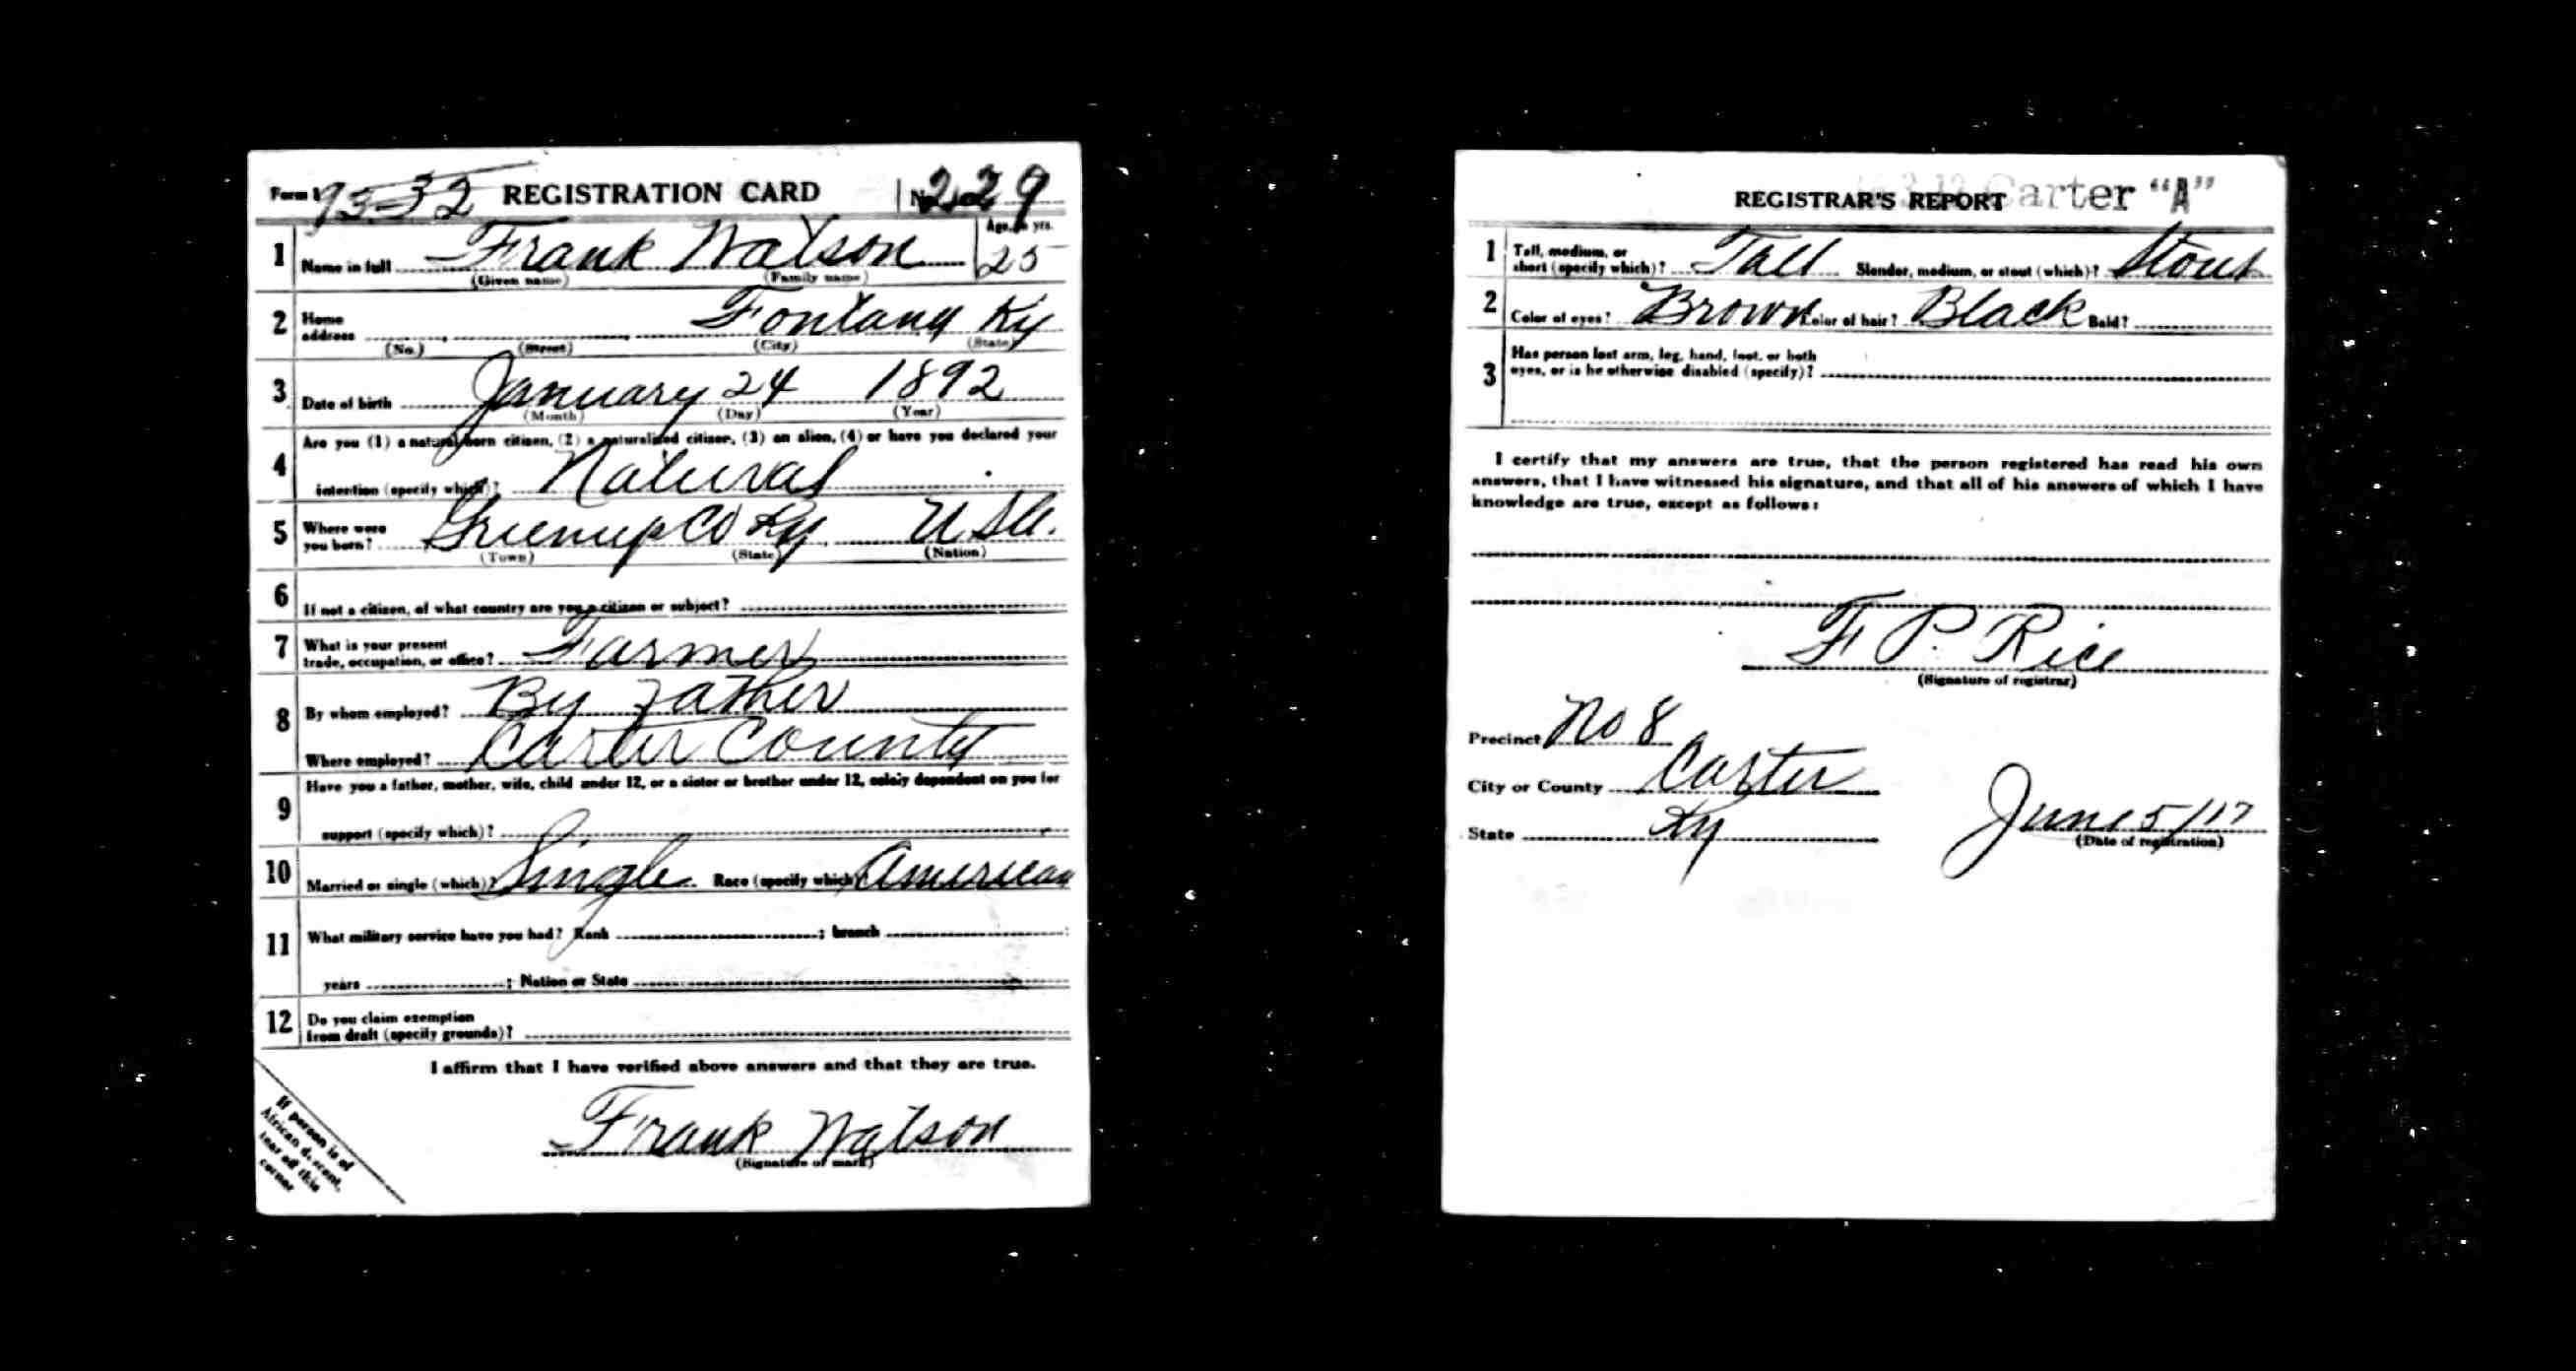 Form 1 93-32 REGISTRATION CARD No. 229
1 Name in full Frank Watson Age, in yrs. 25
(Given name) (Family name)
2 Home address Fontana Ky
(No.) (Street) (City) (State)
3 Date of birth January 24 1892
(Month) (Day) (Year)
4 Are you (1) a natural born citizen, (2) a naturalized citizen, (3) an alien, (4) or have you declared your
intention (specify which)? Natural
5 Where were you born? Greenup Co Ky. U S A.
(Town) (State) (Nation)
6 If not a citizen, of what country are you a citizen or subject?
7 What is your present trade, occupation, or office? Farmer
8 By whom employed? By Father
Where employed? Carter County
9 Have you a father, mother, wife, child under 12, or a sister or brother under 12, solely dependent on you for
support (specify which)?
10 Married or single (which)? Single Race (specify which) American
11 What military service have you had? Rank ; branch ;
years ; Nation or State
12 Do you claim exemption
from draft (specify grounds)?
I affirm that I have verified above answers and that they are true.
Frank Watson
(Signature or mark)
If person is of
African descent,
tear off this
corner
REGISTRAR'S REPORT Carter "A"
1 Tall, medium, or short (specify which)? Tall Slender, medium, or stout (which)? Stout
2 Color of eyes? Brown Color of hair? Black Bald?
3 Has person lost arm, leg, hand, foot, or both
eyes, or is he otherwise disabled (specify)?
I certify that my answers are true, that the person registered has read his own
answers, that I have witnessed his signature, and that all of his answers of which I have
knowledge are true, except as follows:
F. P. Rice
(Signature of registrar)
Precinct No 8
City or County Carter
State Ky
June 5/17
(Date of registration)